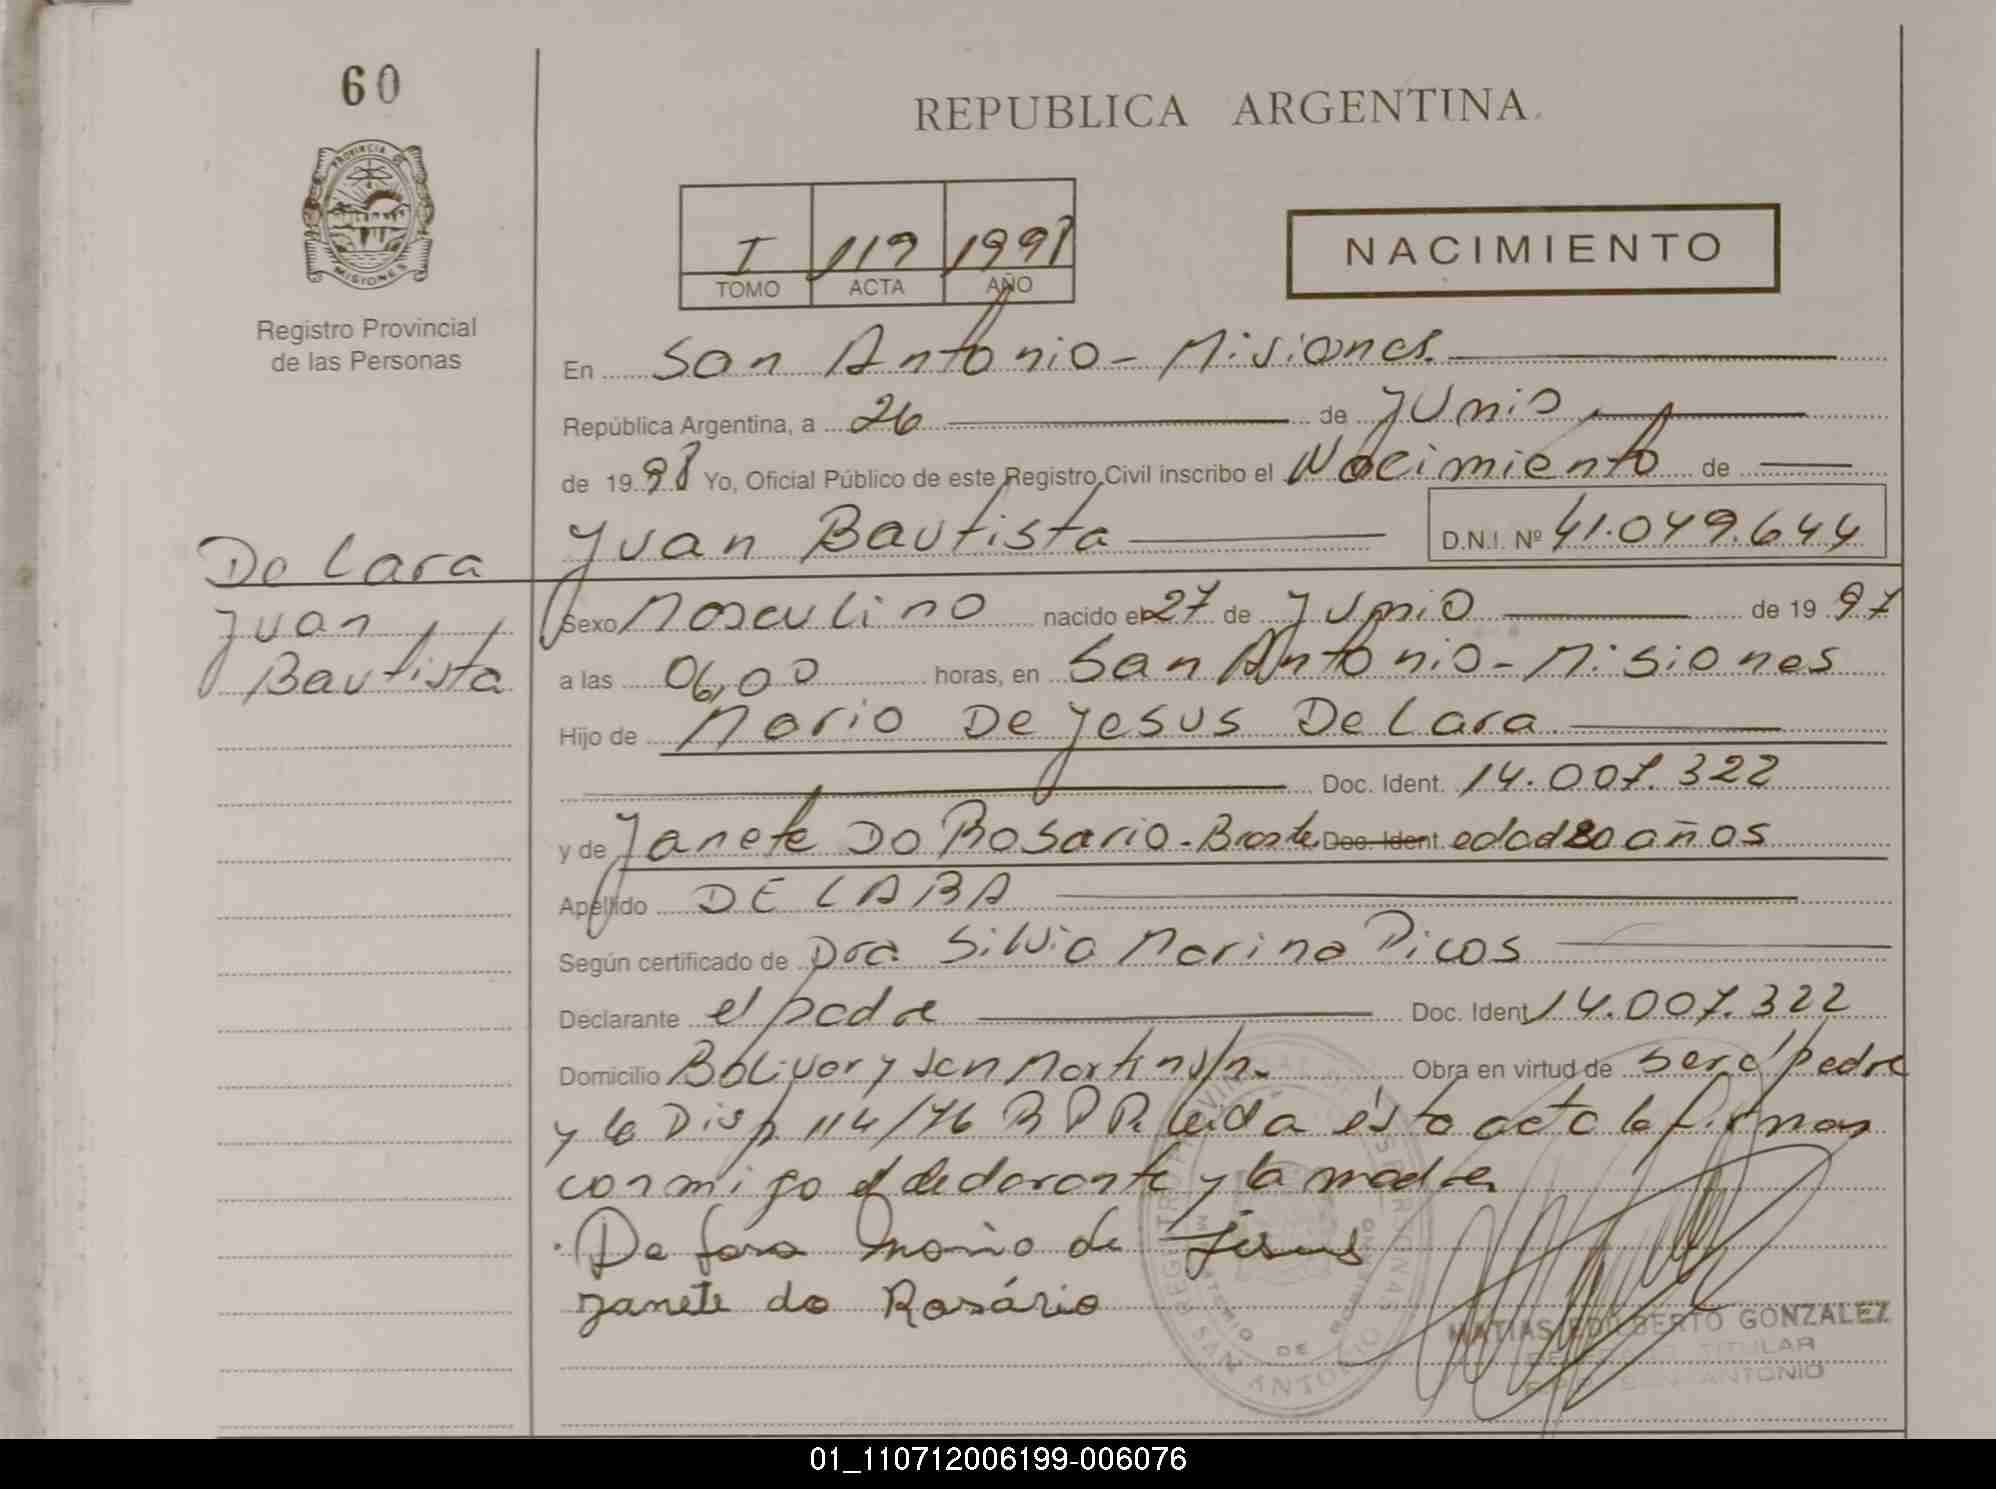 60
REPUBLICA ARGENTINA.
PROVINCIA DE
MISIONES
Registro Provincial
de las Personas
I 119 1998
TOMO ACTA AÑO
NACIMIENTO
En San Antonio - Misiones.
República Argentina, a 26 de Junio
de 1998 Yo, Oficial Público de este Registro Civil inscribo el Nacimiento de
Juan Bautista D.N.I. Nº 41.049.644
De Lara
Juan
Bautista
Sexo Masculino nacido el 27 de Junio de 1997
a las 06,00 horas, en San Antonio - Misiones
Hijo de Mario De Jesus De Lara
Doc. Ident. 14.007.322
y de Janete Do Rosario - Doc. Ident. edad 20 años
Apellido DE LARA
Según certificado de Dra. Silvia Marina Picos
Declarante el padre Doc. Ident 14.007.322
Domicilio Bolivar y San Martin s/n. Obra en virtud de ser el padre
y la Disp 114/76 R P P. Leida ésta acta la firman
conmigo el declarante y la madre
De Lara Mario de Jesus
Janete do Rosário
MATIAS EDILBERTO GONZALEZ
TITULAR
SAN ANTONIO
01_110712006199-006076